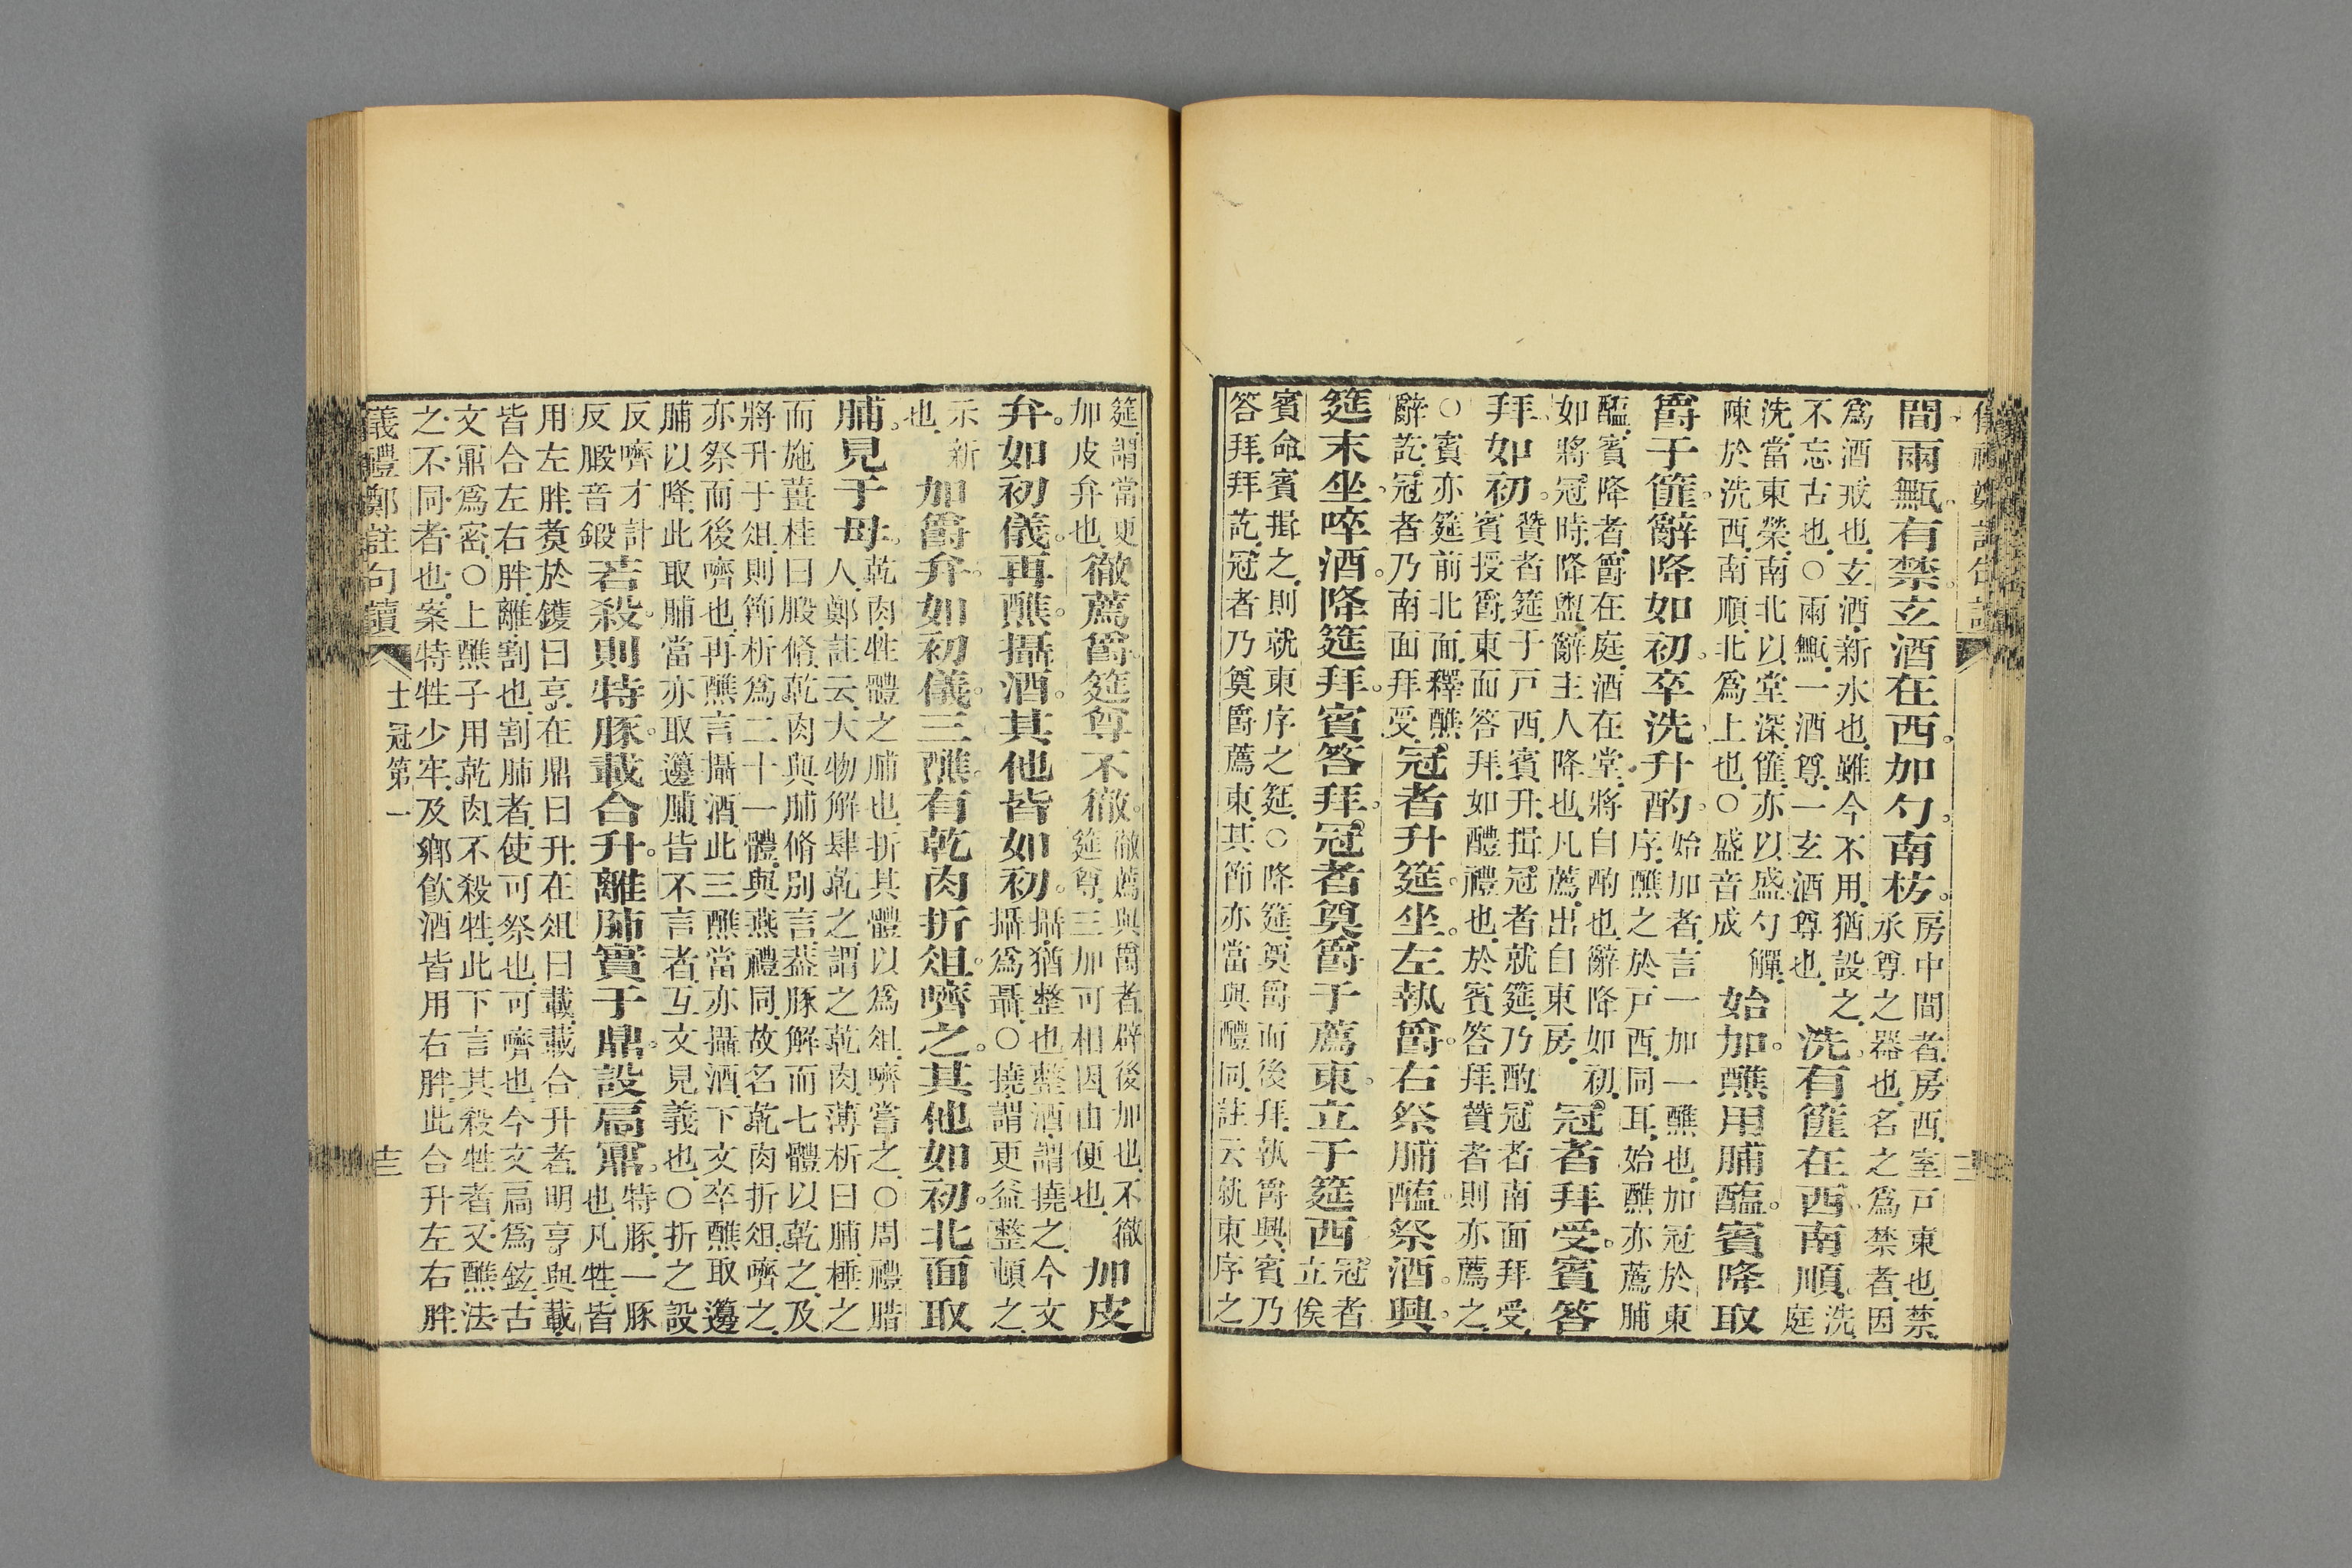 間兩甒有禁玄酒在西加勺南枋房中間者房西室戶東也禁
承尊之器也名之爲禁者因
爲酒戒也玄酒新水也雖今不用猶設之
不忘古也○兩甒一酒尊一玄酒尊也洗有篚在西南順洗
庭
洗當東榮南北以堂深篚亦以盛勺觶
陳於洗西南順北爲上也○盛音成始加醮用脯醢賓降取
爵于篚辭降如初卒洗升酌始加者言一加一醮也加冠於東
序醮之於戶西同耳始醮亦薦脯
醢賓降者爵在庭酒在堂將自酌也辭降如初
如將冠時降盥辭主人降也凡薦出自東房冠者拜受賓答
拜如初贊者筵于戶西賓升揖冠者就筵乃酌冠者南面拜受
賓授爵東面答拜如醴禮也於賓答拜贊者則亦薦之
○賓亦筵前北面釋醮
辭訖冠者乃南面拜受冠者升筵坐左執爵右祭脯醢祭酒興
筵末坐啐酒降筵拜賓答拜冠者奠爵于薦東立于筵西冠者
立俟
賓命賓揖之則就東序之筵○降筵奠爵而後拜執爵興賓乃
答拜拜訖冠者乃奠爵薦東其節亦當與醴同註云就東序之
筵謂當更
加皮弁也徹薦爵筵尊不徹徹薦與爵者辟後加也不徹
筵尊三加可相因由便也加皮
弁如初儀再醮攝酒其他皆如初攝猶整也整酒謂撓之今文
攝爲聶○撓謂更益整頓之
示新
也加爵弁如初儀三醮有乾肉折俎嚌之其他如初北面取
脯見于母乾肉牲體之脯也折其體以爲俎嚌嘗之○周禮腊
人鄭註云大物解肆乾之謂之乾肉薄析曰脯棰之
而施薑桂曰腶脩乾肉與脯脩別言葢豚解而七體以乾之及
將升于俎則節析爲二十一體與燕禮同故名乾肉折俎嚌之
亦祭而後嚌也再醮言攝酒此三醮當亦攝酒下文卒醮取籩
脯以降此取脯當亦取籩脯皆不言者互文見義也○折之設
反嚌才計
反腶音鍛若殺則特豚載合升離肺實于鼎設扃鼏特豚一豚
也凡牲皆
用左胖煑於鑊曰亨在鼎曰升在俎曰載載合升者明亨與載
皆合左右胖離割也割肺者使可祭也可嚌也今文扃爲鉉古
文鼏爲密○上醮子用乾肉不殺牲此下言其殺牲者又醮法
之不同者也案特牲少牢及鄉飮酒皆用右胖此合升左右胖
儀禮鄭註句讀
士冠第一